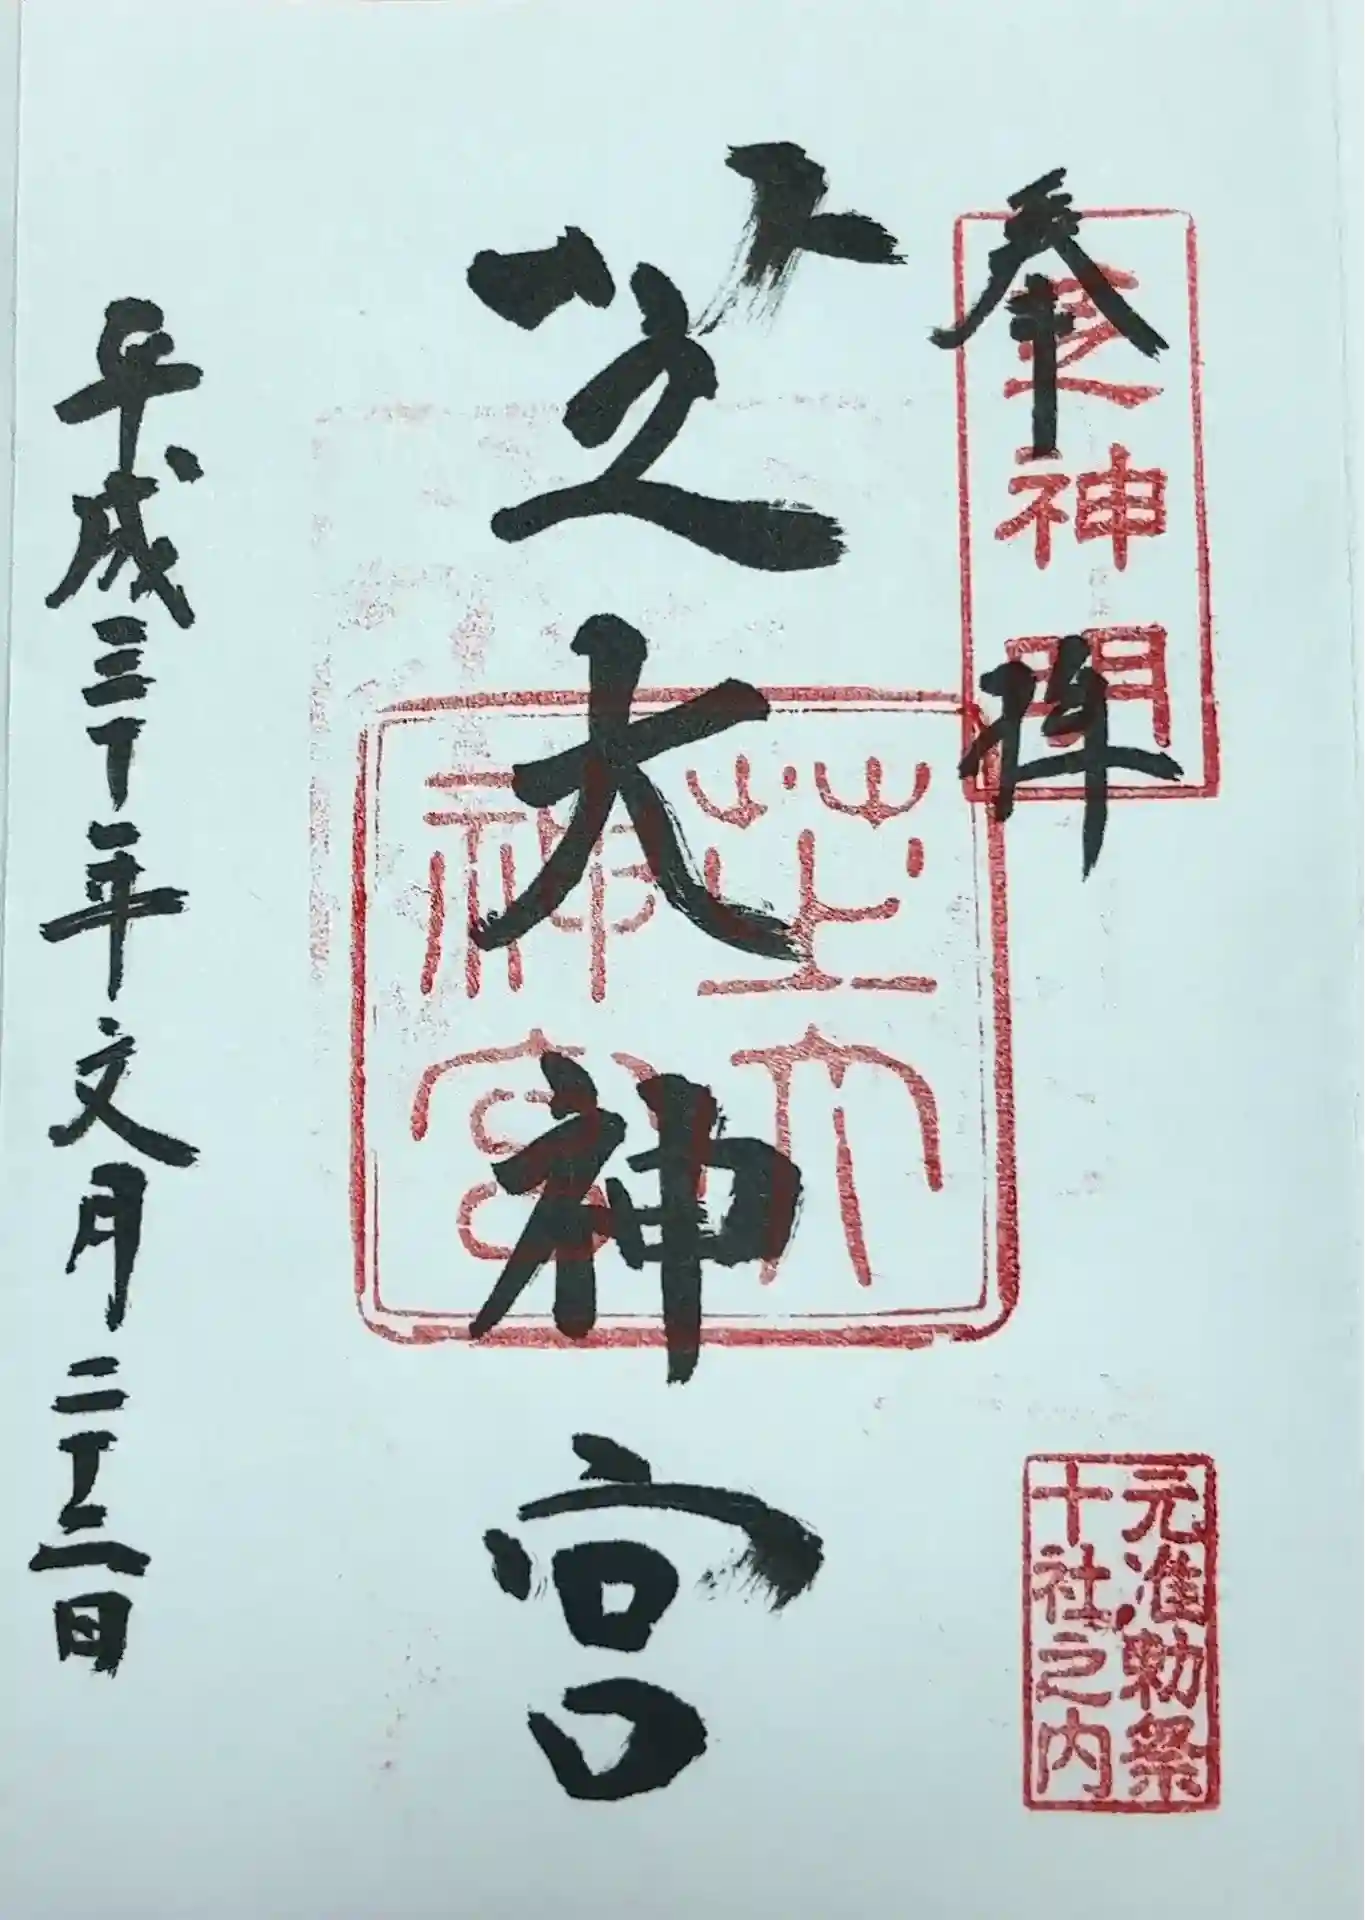 奉拝
芝神明
元准勅祭
十社之内
芝大神宮
芝大
神宮
平成三十年文月二十二日